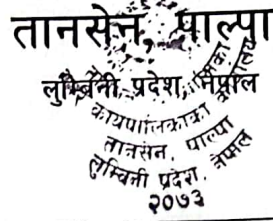 तानसेन, पाल्पा
लुम्बिनी प्रदेश, नेपाल
कार्यपालिकाको
तानसेन, पाल्पा
लुम्बिनी प्रदेश, नेपाल
२०७३